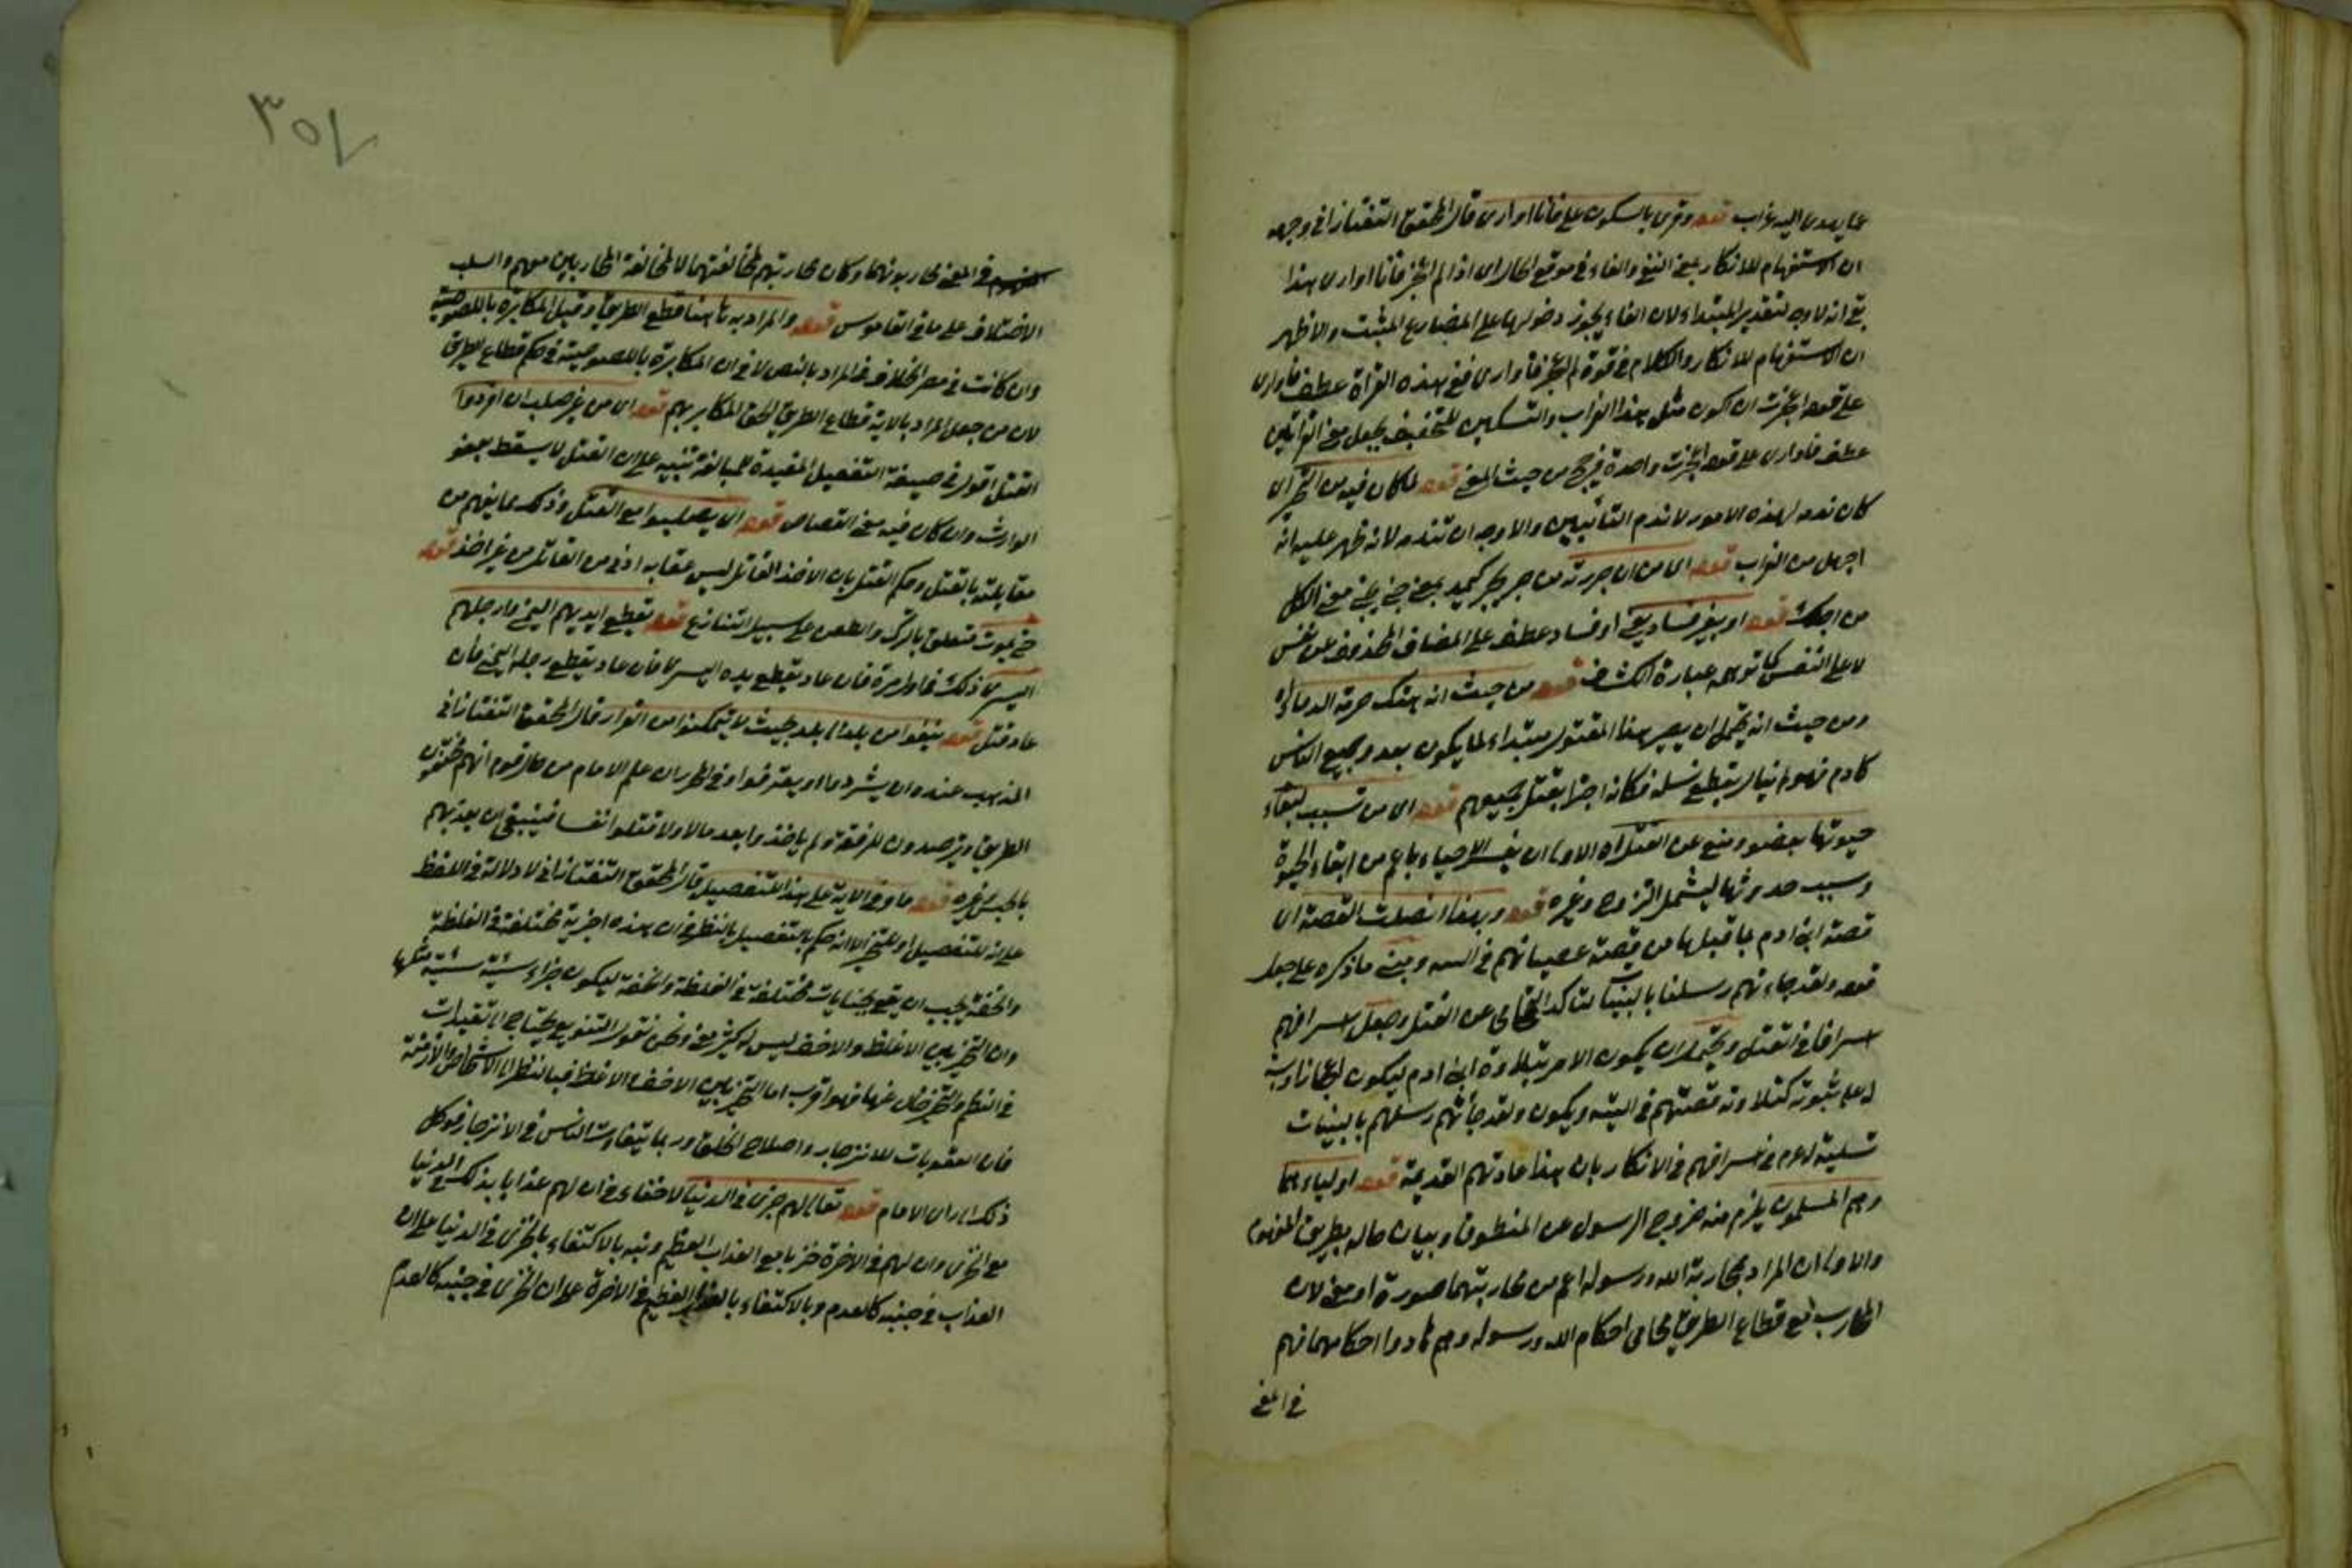 عما يهدى اليه غراب قوله وقرى بالسكون على فانا اوارى قال المحقق التفتازانى وجهه
ان الاستفهام للانكار بمعنى النفى والفاء فى موقع الحال اى اذا لم اعجز فانا اوارى هذا
بقى انه لا وجه لتقدير المبتداء لان الفاء يجوز دخولها على المضارع المثبت والاظهر
ان الاستفهام للانكار والكلام فى قوة لم اعجز فاوارى فمع هذه القراة عطف فاوارى
على قوله اعجزت ان اكون مثل هذا الغراب والتسكين للتخفيف يجعل معنى القراتين
عطف فاوارى على قوله اعجزت واحدة فيرجح من حيث المعنى قوله لما كان فيه من التحير اى
كان ندمه لهذه الامور لا ندم التائبين والاوجه ان تندمه لانه ظهر عليه انه
اجهل من الغراب قوله اى من ان جررته من جر يجر كيمد بمعنى جنى يجنى معنى الكل
من اجلك قوله او بغير فساد يعنى او فساد عطف على المضاف المحذوف عن نفس
لا على النفس كما توهمه عبارة الكشاف قوله من حيث انه هتك حرمة الدماء اه
ومن حيث انه يحتمل ان يصير هذا المقتول مبتداء لما يكون بعد وجميع الناس
كادم فهو لم يبال بقطع نسله فكانه اجترا بقتل جميعهم قوله اى من تسبب لبقاء
حيوتها بعفو ومنع عن القتل اه الاولى ان يفسر الاحياء باعم من ابقاء الحيوة
وسبب حدوثها ليشمل التزوج وغيره قوله وبهذا اتصلت القصة اى
قصة ابنى ادم بما قبلها من قصة عصيانهم فى التيه ومبنى ما ذكره على جعل
قوله ولقد جاءتهم رسلنا بالبينات لتاكد التحامى عن القتل وجعل اسرافهم
اسرافا فى القتل ويحتمل ان يكون الامر بتلاوة ابنى ادم ليكون اعجازا وبينة
له على نبوته كتلاوته قصتهم فى التيه ويكون ولقد جأتهم رسلهم بالبينات
تسلية له عم فى اسرافهم فى الانكار بان هذا عادتهم القديمة قوله اولياءهما
وهم المسلمون يلزم منه خروج الرسول عن المنطوق وبيان حاله بطريق المفهوم
والاولى ان المراد بمحاربة الله ورسوله اعم من محاربتهما صورة او معنى لان
المحارب مع قطاع الطريق محامى احكام الله ورسوله وهم ما دوا احكامهما فهم
فى المعنى
٣٥٧
فى المعنى يحاربونهما وكان محاربتهم لمخالفتهما لا لمخالفة المحاربين معهم والسلب
الاختلاف على ما فى القاموس قوله والمراد به ههنا قطع الطريق وقيل المكابرة باللصوصية
وان كانت فى مصر الخلاف فى المراد بالنص لا فى ان المكابرة باللصوصية فى حكم قطاع الطريق
لان من جعل المراد بالاية قطاع الطريق الحق المكابر بهم قوله اى من غير صلب ان افردوا
القتل اقول فى صيغة التفعيل المفيدة للمبالغة تنبيه على ان القتل لا يسقط بعفو
الوارث وان كان فيه معنى القصاص قوله اى يصلبوا مع القتل وذلك مما يفهم من
مقابلته بالقتل وحكم القتل بان الاخذ القاتل ليس عقابه ادنى من القاتل من غير اخذ قوله
حتى يموت متعلق بالترك والطعن على سبيل التنازع قوله بقطع ايديهم اليمنى وارجلهم
اليسرى ذلك فى اول مرة فان عاد يقطع يده اليسرى فان عاد يقطع رجله اليمنى فان
عاد قتل قوله ينفوا من بلد الى بلد بحيث لا يتمكنوا من القرار قال المحقق التفتازانى
المذهب عنده ان يشردوا او يعترفوا وفى المحرر ان علم الامام من حال قوم انهم يخيفون
الطريق ويترصدون للرفقة ولم ياخذوا بعد مالا ولا قتلوا نفسا فينبغى ان يعذبهم
بالحبس وغيره قوله ما وفى الاية على هذا التفصيل قال المحقق التفتازانى لا دلالة فى اللفظ
على انه للتفصيل او للتخيير الا انه حكم بالتفصيل بالنظر فى ان هذه اجزية مختلفة فى الغلظة
والخفة فيجب ان يقع بجنايات مختلفة فى الغلظة والخفة ليكون جزاء سيئة سيئة مثلها
وان التخيير بين الاغلظ والاخف ليس له كثير معنى ونحن نقول التنويع يحتاج الى تقييدات
فى النظم والتخيير خال عنها فهو اقرب اما التخيير بين الاخف والاغلظ فبالنظر الى الاشخاص والازمنة
فان العقوبات للانزجار واصلاح الخلق وربما يتفاوت الناس فى الانزجار فوكل
ذلك الى راى الامام قوله تعالى لهم خزى فى الدنيا لا خفاء فى ان لهم عذابا بذلك فى الدنيا
مع الخزى وان لهم فى الاخرة خزيا مع العذاب العظيم ونبه بالاكتفاء بالخزى فى الدنيا على ان
العذاب فى جنبه كالعدم وبالاكتفاء بالعذاب العظيم فى الاخرة على ان الخزى فى جنبه كالعدم